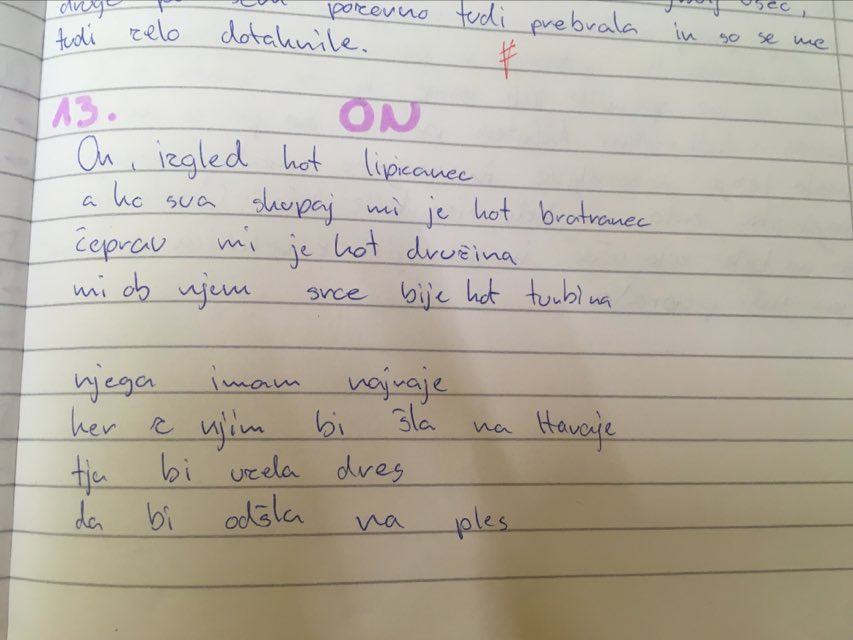 druge po sem ponovno tudi prebrala in so se me
tudi zelo dotaknile.
13. ON
On, izgled kot lipicanec
a ko sva skupaj mi je kot bratranec
čeprav mi je kot družina
mi ob njem srce bije kot turbina
njega imam najraje
ker z njim bi šla na Havaje
tja bi vzela dres
da bi odšla na ples